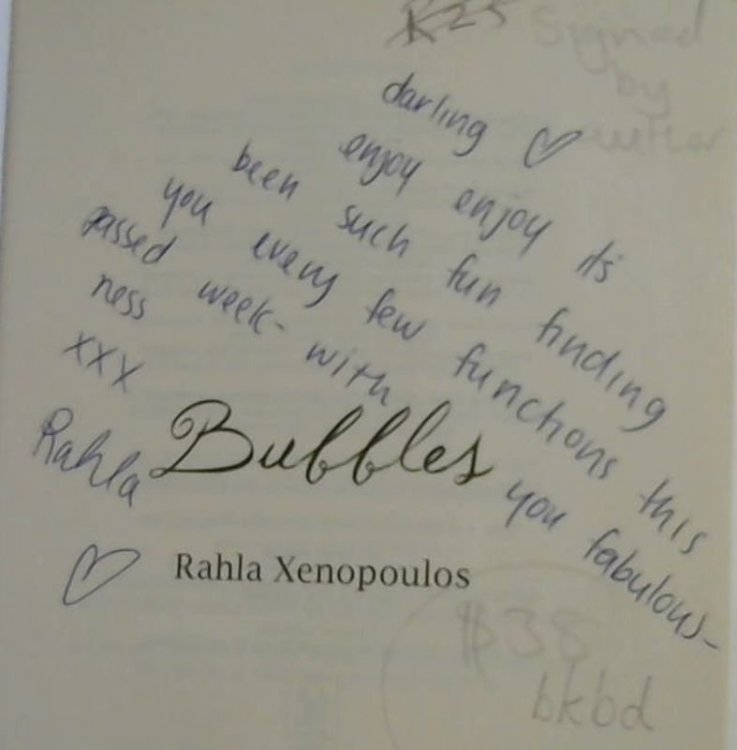 R25
Signed
by
author
darling ♡
enjoy enjoy its
been such fun finding
you every few functions this
passed week- with you fabulous-
ness
xxx
Rahla
♡
Bubbles
Rahla Xenopoulos
$38
bkbd